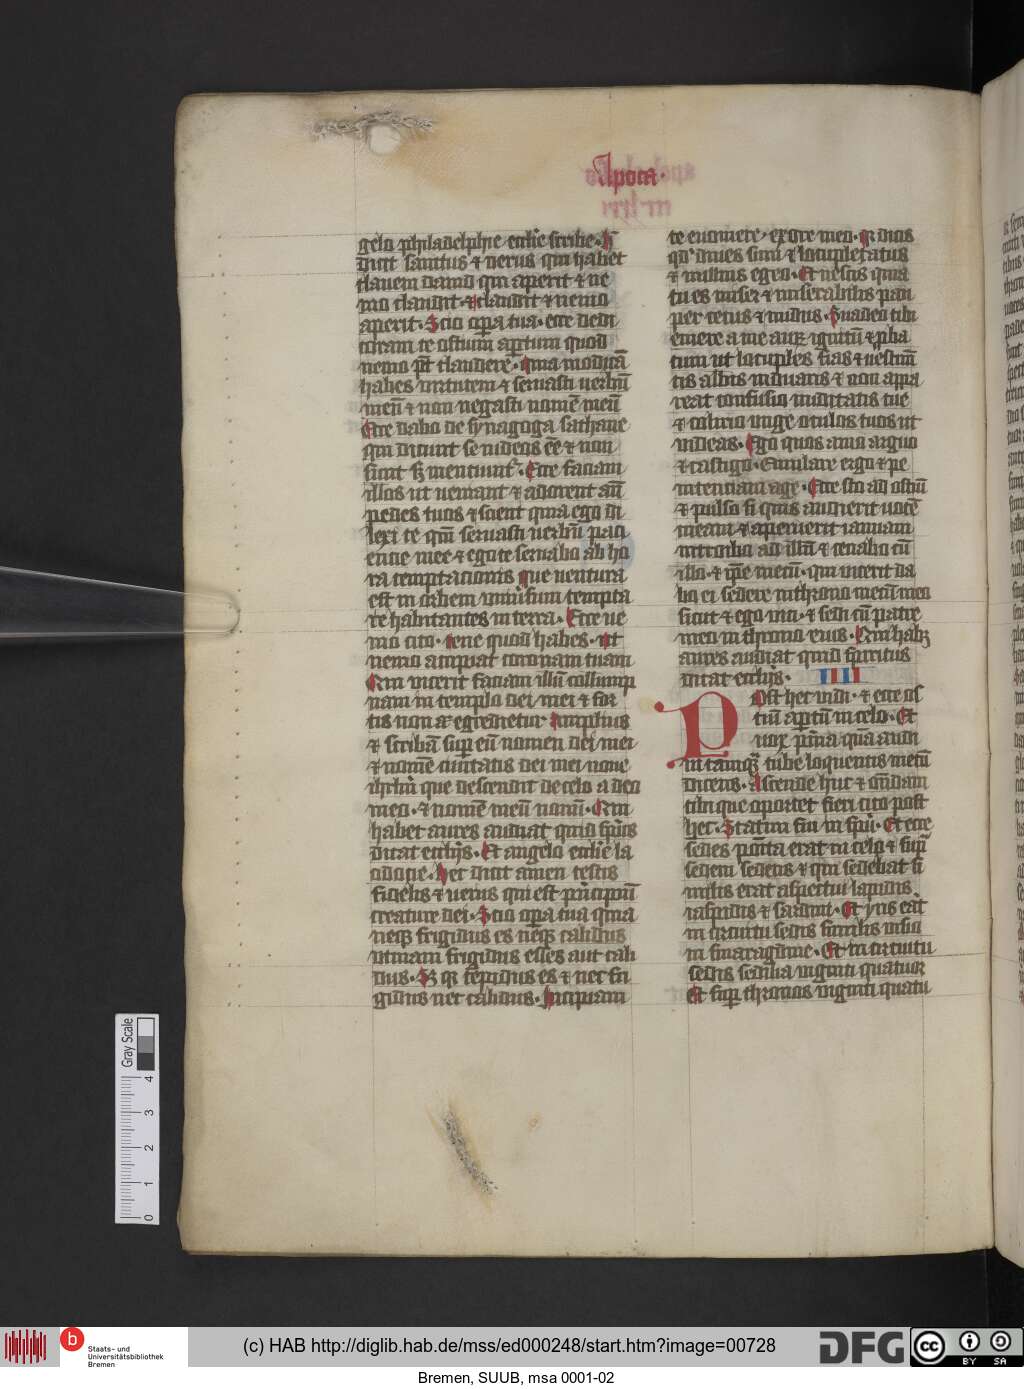 Apoca.
gelo philadelphie ecclīe scribe. h̄
dicit sanctus ⁊ uerus qui habet
clauem dauid qui aperit ⁊ ne
mo claudit ⁊ claudit ⁊ nemo
aperit. Scio oꝑa tua. ecce dedi
coram te ostium aꝑtum quod
nemo pōt claudere. quia modicā
habes uirtutem ⁊ seruasti uerbū
meū ⁊ non negasti nomē meū
Ecce dabo de synagoga sathane
qui dicunt se iudeos eē ⁊ non
sunt sꝫ mentiunt᷑. Ecce faciam
illos ut ueniant ⁊ adorent an̄
pedes tuos ⁊ scient quia ego di
lexi te qm̄ seruasti uerbū paci
encie mee ⁊ ego te seruabo ab ho
ra temptacionis que uentura
est in orbem uniūsum tempta
re habitantes in terra. Ecce ue
nio cito. tene quod habes. ut
nemo accipiat coronam tuam
Qui uicerit faciam illū collump
nam in templo dei mei ⁊ for
tis non egredietur amplius
⁊ scribā suꝑ eū nomen dei mei
⁊ nomē ciuitatis dei mei noue
ihrl̄m que descendit de celo a deo
meo. ⁊ nomē meū nouū. Qui
habet aures audiat quid sp̄us
dicat eccl̄ijs. Et angelo eccl̄ie la
odocie. Hec dicit amen testis
fidelis ⁊ uerus qui est pͥncipiū
creature dei. Scio oꝑa tua quia
neqꝫ frigidus es neqꝫ calidus
utinam frigidus esses aut cali
dus. Sꝫ qꝛ tepidus es ⁊ nec fri
gidus nec calidus. Incipiam
te euomere ex ore meo. qꝛ dicis
qd̓ diues sum ⁊ locupletatus
⁊ nullius egeo. Et nescis quia
tu es miser ⁊ miserabilis pau
per cecus ⁊ nudus. Suadeo tibi
emere a me auꝝ ignitū ⁊ ꝓba
tum ut locuples fias ⁊ uestim̄
tis albis induaris ⁊ non appa
reat confusio nuditatis tue
⁊ colirio unge oculos tuos ut
uideas. Ego quos amo arguo
⁊ castigo. Emulare ergo ⁊ pe
nitenciam age. Ecce sto ad ostiū
⁊ pulso si quis audierit uocē
meam ⁊ aperuerit ianuam
introibo ad illū ⁊ cenabo cū
illo. ⁊ ip̄e mecū. qui uicerit da
bo ei sedere in throno meū meo
sicut ⁊ ego uici. ⁊ sedi cū patre
meo in throno eius. Qui habꝫ
aures audiat quid spiritus
dicat eccl̄ijs. IIII
Post hec uidi. ⁊ ecce os
tiū aꝑtū in celo. Et
uox pͥma quā audi
ui tamqꝫ tube loquentis mecū
dicens. Ascende huc ⁊ on̄dam
tibi que oportet fieri cito post
hec. Statim fui in sp̄u. Et ecce
sedes poīta erat in celo ⁊ suꝑ
sedem sedens ⁊ qui sedebat si
milis erat aspectui lapidis
iaspidis ⁊ sardini. Et yris eāt
in circuitu sedis similis uisio
ni smaragdine. Et in circuitu
sedis sedilia uiginti quatuor
Et suꝑ thronos uiginti quatu
Gray Scale
4
3
2
1
0
b
Staats- und
Universitätsbibliothek
Bremen
(c) HAB http://diglib.hab.de/mss/ed000248/start.htm?image=00728
DFG
cc
BY SA
Bremen, SUUB, msa 0001-02